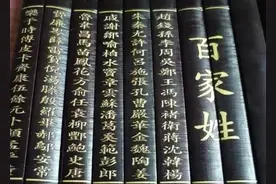 百家姓
趙錢孫李周吳鄭王馮陳褚衛蔣沈韓楊
朱秦尤許何呂施張孔曹嚴華金魏陶姜
戚謝鄒喻柏水竇章雲蘇潘葛奚範彭郎
魯韋昌馬苗鳳花方俞任袁柳酆鮑史唐
費廉岑薛雷賀倪湯滕殷羅畢郝鄔安常
樂于時傅皮卞齊康伍餘元卜顧孟平